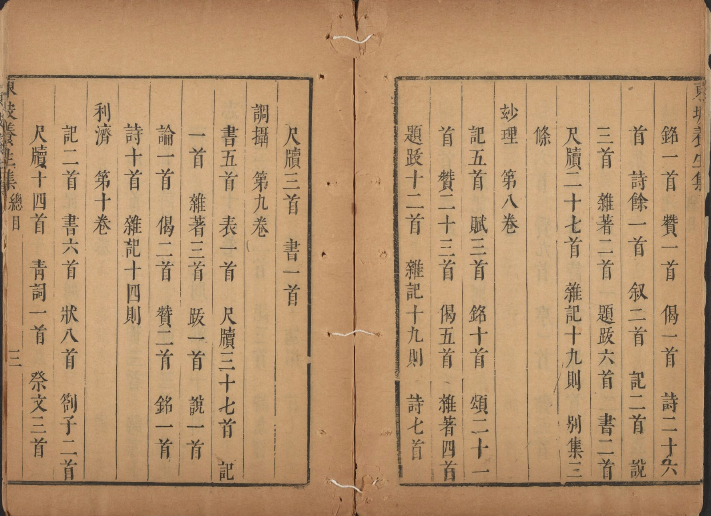 東坡養生集
銘一首 贊一首 偈一首 詩二十六
首 詩餘一首 叙二首 記二首 說
三首 雜著二首 題跋六首 書二首
尺牘二十七首 雜記十九則 别集三
條
玅理 第八卷
記五首 賦三首 銘十首 頌二十一
首 贊二十三首 偈五首 雜著四首
題跋十二首 雜記十九則 詩七首
尺牘三首 書一首
調攝 第九卷
書五首 表一首 尺牘三十七首 記
一首 雜著三首 跋一首 說一首
論一首 偈二首 贊二首 銘一首
詩十首 雜記十四則
利濟 第十卷
記二首 書六首 狀八首 劄子二首
尺牘十四首 青詞一首 祭文三首
東坡養生集 總目 三